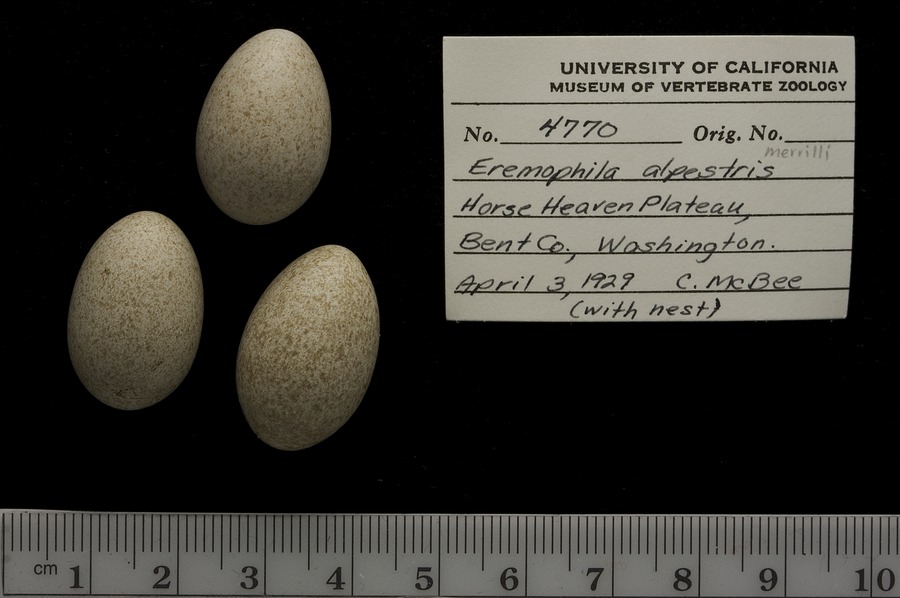 UNIVERSITY OF CALIFORNIA
MUSEUM OF VERTEBRATE ZOOLOGY
No. 4770 Orig. No.
merrilli
Eremophila alpestris
Horse Heaven Plateau,
Bent Co., Washington.
April 3, 1929 C. McBee
(with nest)
cm 1 2 3 4 5 6 7 8 9 10